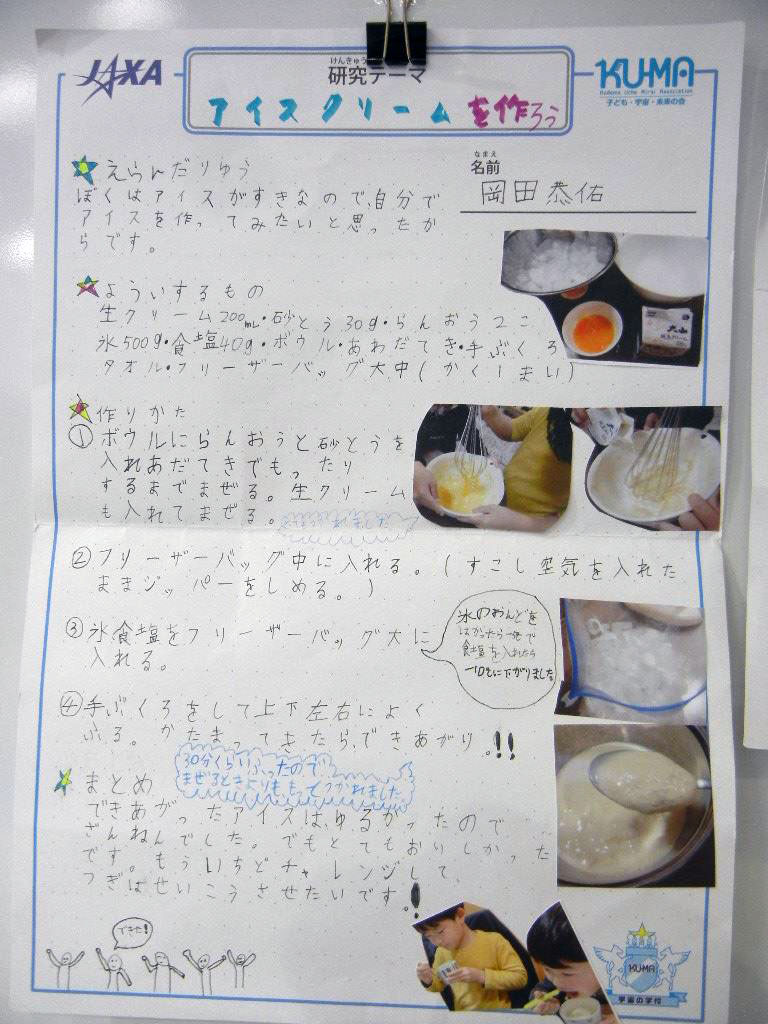 JAXA
けんきゅう
研究テーマ
アイスクリームを作ろう
KU-MA
Kodomo Uchu Mirai Association
子ども・宇宙・未来の会
なまえ
名前
岡田恭佑
えらんだりゆう
ぼくはアイスがすきなので、自分で
アイスを作ってみたいと思ったか
らです。
よういするもの
生クリーム200mL・砂とう30g・らんおう2こ
氷500g・食塩40g・ボウル・あわだてき・手ぶくろ
タオル・フリーザーバッグ大中(かく1まい)
作りかた
①ボウルにらんおうと砂とうを
入れあだてきでもったり
するまでまぜる。生クリーム
も入れてまぜる。
つかれました
②フリーザーバッグ中に入れる。(すこし空気を入れた
ままジッパーをしめる。)
③氷食塩をフリーザーバッグ大に
入れる。
氷のおんどを
はかったら一地で
食塩を入れたら
-10℃に下がりました
④手ぶくろをして上下左右によく
ふる。かたまってきたら、できあがり。!!
30分くらいふったので
まぜるときよりも、もっとつかれました
まとめ
できあがったアイスは、ゆるかったので
ざんねんでした。でもとてもおいしかった
です。もういちどチャレンジして、
つぎはせいこうさせたいです。!
できた!
KU-MA
宇宙の学校